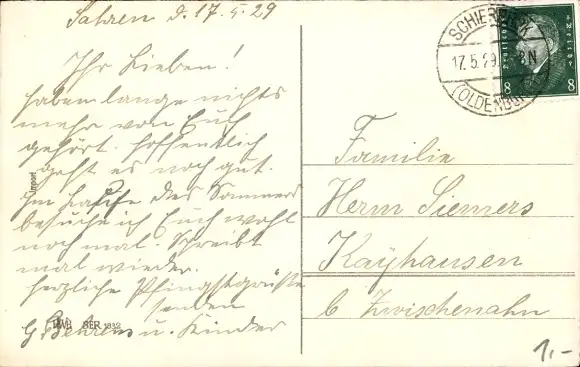 Sahren d. 17.5.29
Ihr Lieben!
haben lange nichts
mehr von Euch
gehört. hoffentlich
geht es noch gut.
Im Laufe des Sommers
besuche ich Euch wohl
noch mal. Schreibt
mal wieder.
herzliche Pfingstgrüße
senden
G. Behrens u. Kinder
Import
SER 1832
SCHIERBROK
17.5.29
8 N
(OLDENBURG)
8 8
Familie
Herm Siemers
Kayhausen
b Zwischenahn
1,-